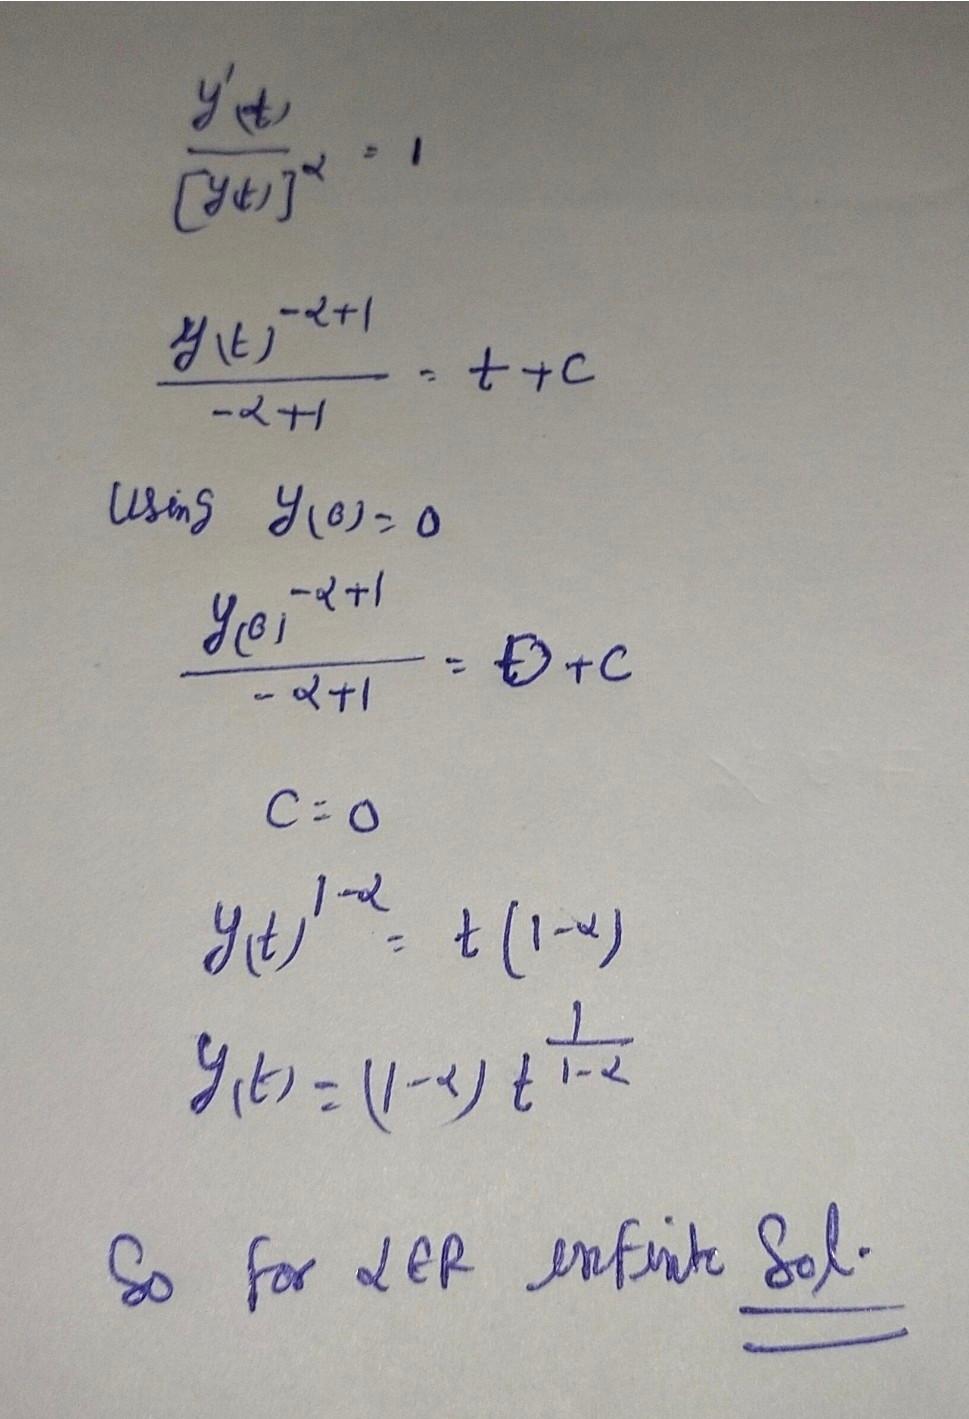 y'(t) / [y(t)]^α = 1
y(t)^{-α+1} / (-α+1) = t + C
Using y(0) = 0
y(0)^{-α+1} / (-α+1) = 0 + C
C = 0
y(t)^{1-α} = t(1-α)
y(t) = (1-α) t^{1/(1-α)}
So for α ∈ R infinite Sol.